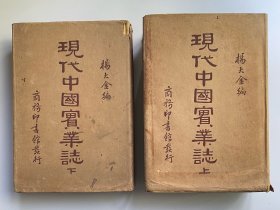 楊大金編
現代中國實業誌 上
商務印書館發行
楊大金編
現代中國實業誌 下
商務印書館發行